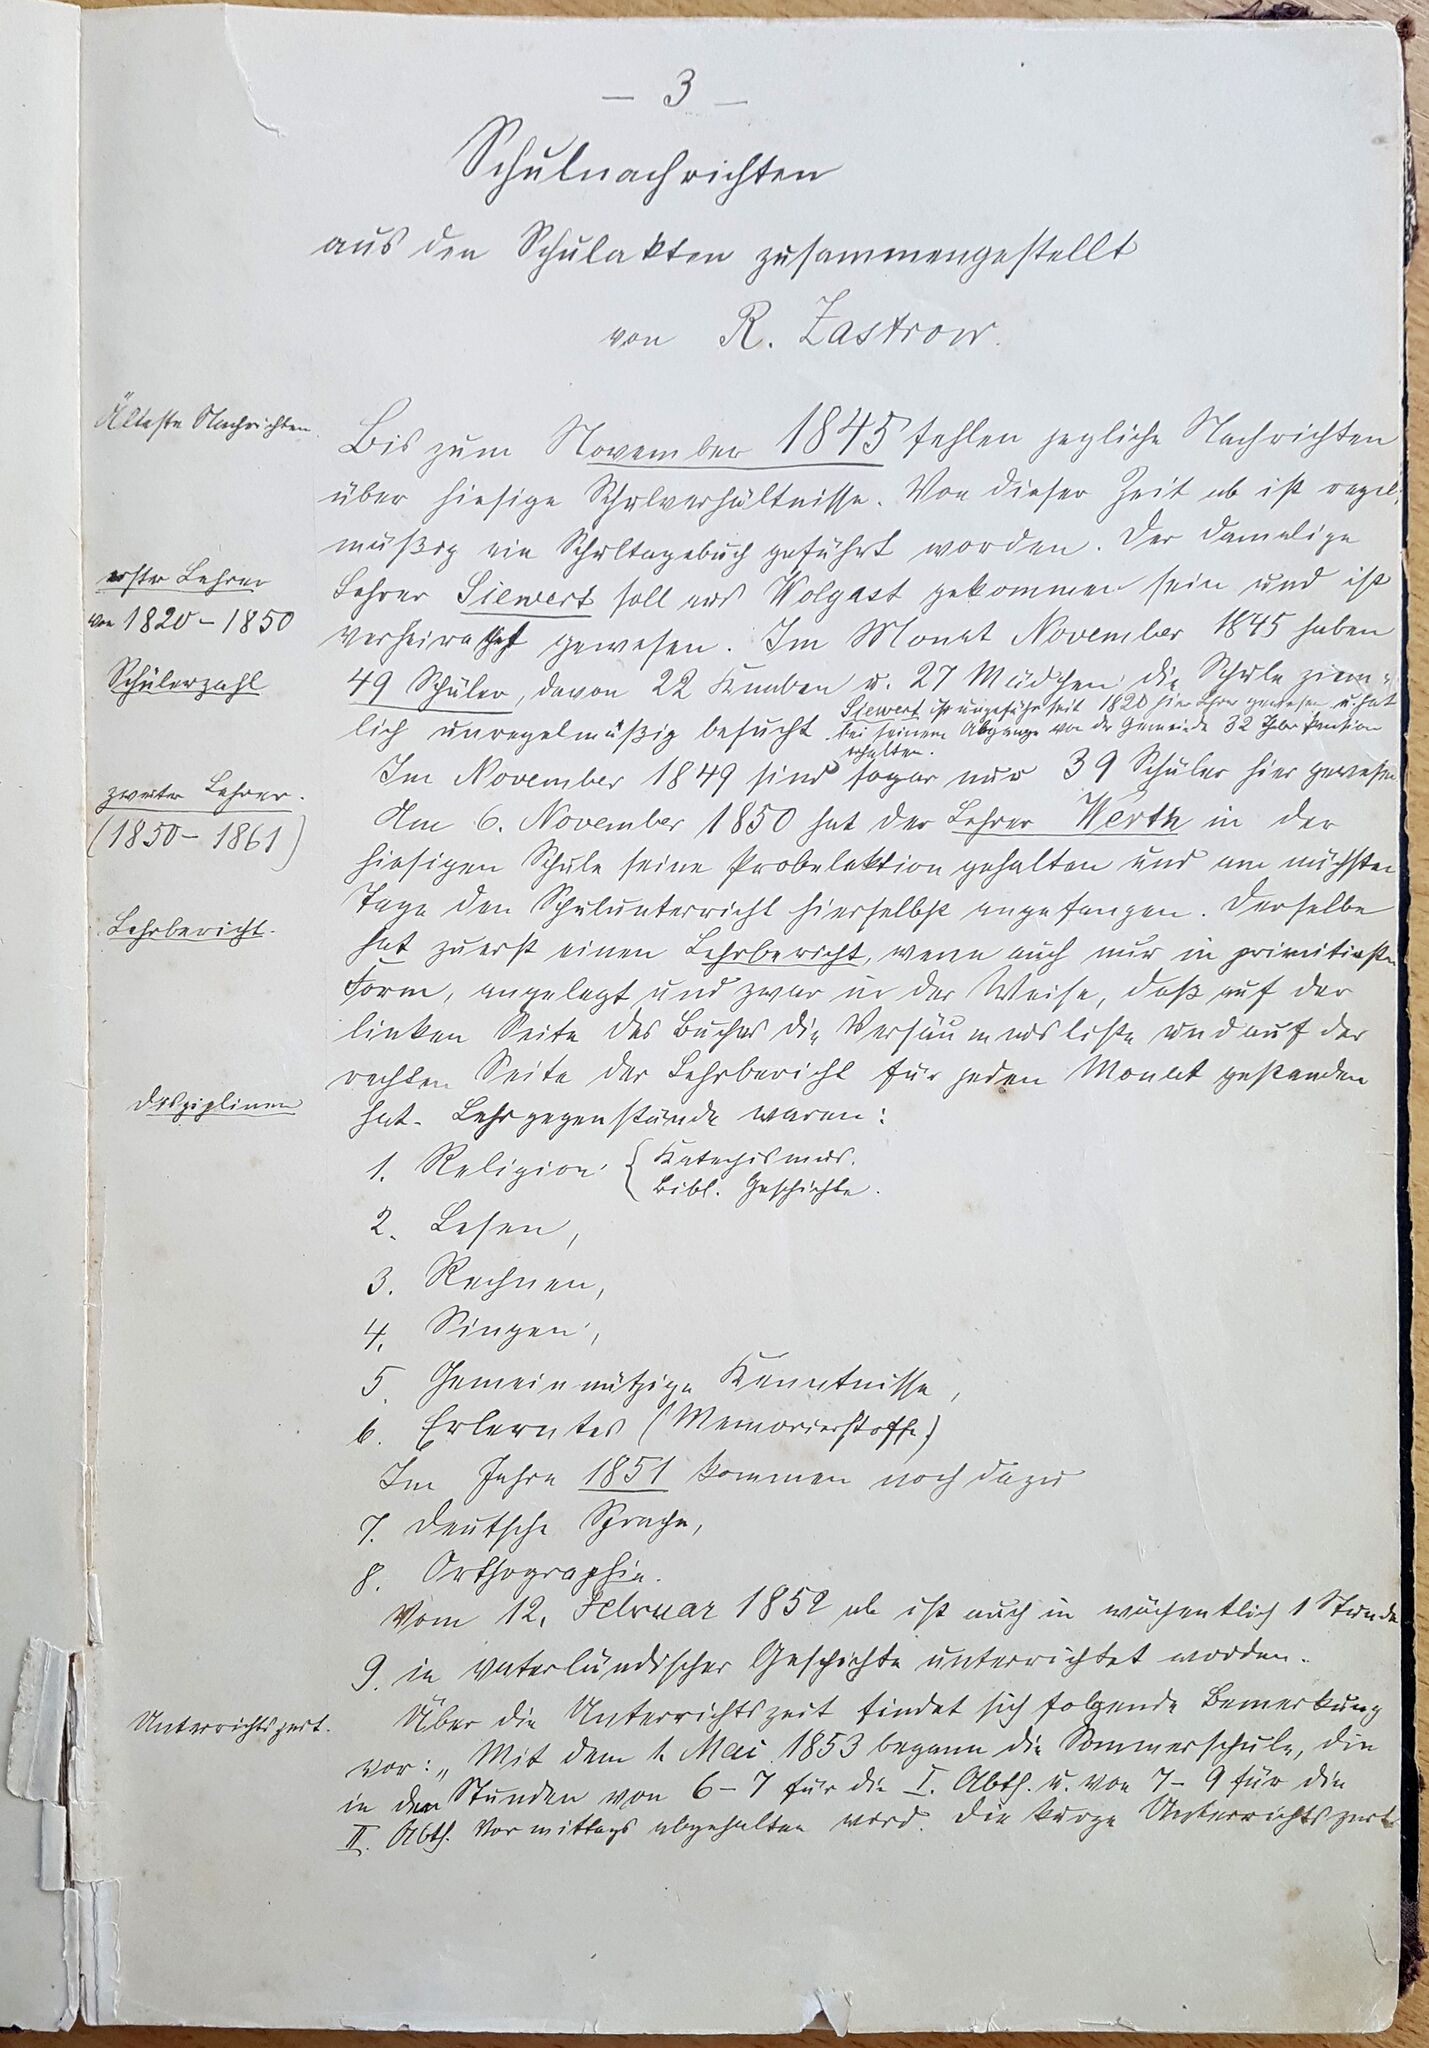 — 3 —
Schulnachrichten
aus den Schulakten zusammengestellt
von R. Zastrow.
Älteste Nachrichten.
Bis zum November 1845 fehlen jegliche Nachrichten
über hiesige Schulverhältnisse. Von dieser Zeit ab ist regel-
mäßig ein Schultagebuch geführt worden. Der damalige
erster Lehrer
von 1820 - 1850
Lehrer Siewert soll aus Wolgast gekommen sein und ist
verheirathet gewesen. Im Monat November 1845 haben
Schülerzahl
49 Schüler, davon 22 Knaben u. 27 Mädchen die Schule ziem-
lich unregelmäßig besucht.
Siewert ist ungefähr seit 1820 hier Lehrer gewesen u. hat
bei seinem Abgange von der Gemeinde 32 Thlr Pension
erhalten.
Im November 1849 sind sogar nur 39 Schüler hier gewesen
zweiter Lehrer.
(1850 - 1861)
Am 6. November 1850 hat der Lehrer Werth in der
hiesigen Schule seine Probelektion gehalten und am nächsten
Tage den Schulunterricht hierselbst angefangen. Derselbe
Lehrbericht.
hat zuerst einen Lehrbericht, wenn auch nur in primitivster
Form, angelegt und zwar in der Weise, daß auf der
linken Seite des Buches die Versäumnisliste und auf der
rechten Seite der Lehrbericht für jeden Monat gestanden
Disziplinen
hat. Lehrgegenstände waren:
1. Religion { Katechismus.
Bibl. Geschichte.
2. Lesen,
3. Rechnen,
4. Singen,
5. Gemeinnützige Kenntnisse,
6. Erlerntes (Memorierstoffe)
Im Jahre 1851 kommen noch dazu
7. Deutsche Sprache,
8. Orthographie.
Vom 12. Februar 1852 ab ist auch in wöchentlich 1 Stunde
9. in vaterländischer Geschichte unterrichtet worden.
Unterrichtszeit.
Über die Unterrichtszeit findet sich folgende Bemerkung
vor: „Mit dem 1. Mai 1853 begann die Sommerschule, die
in den Stunden von 6 – 7 für die I. Abth. u. von 7 – 9 für die
II. Abth. Vormittags abgehalten wird. Die kurze Unterrichtszeit